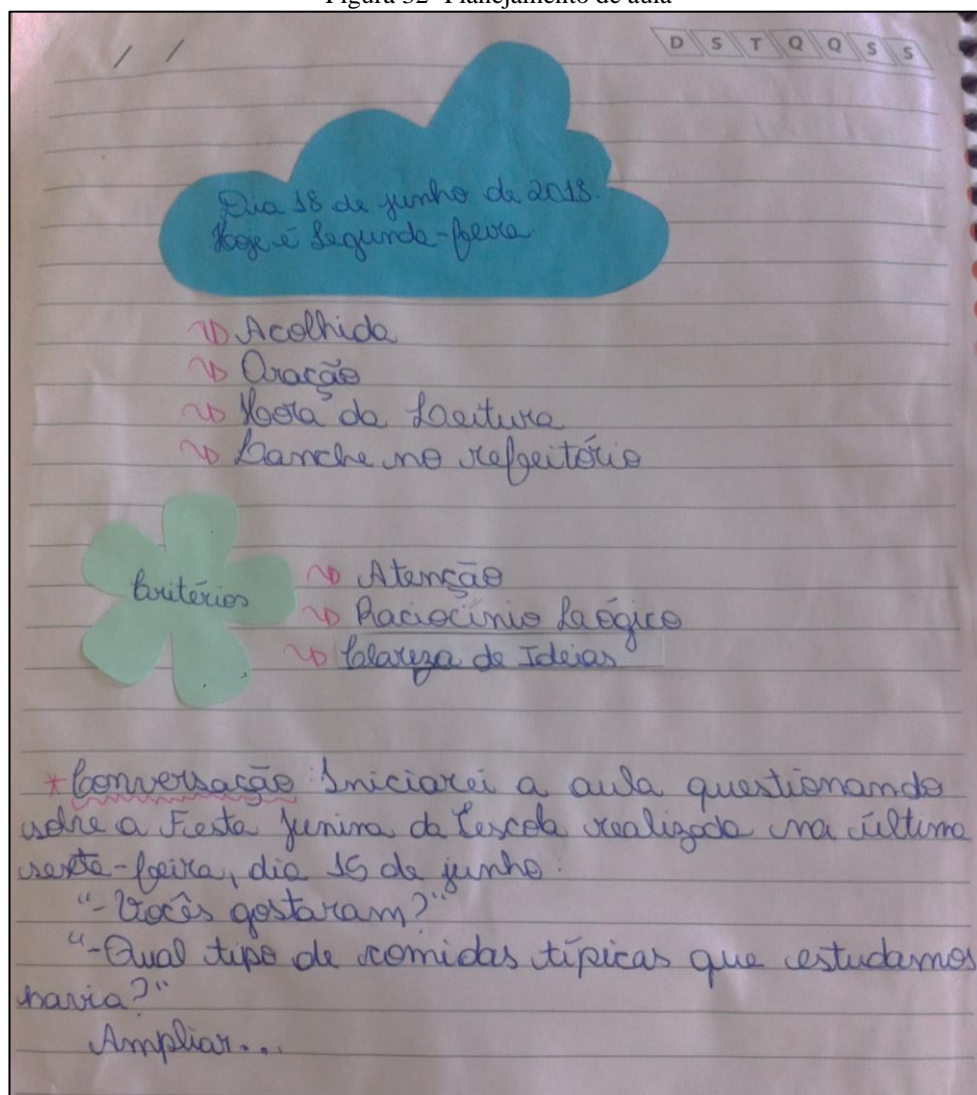 Figura 32- Planejamento de aula
/ /
D S T Q Q S S
Dia 18 de junho de 2018.
Hoje é Segunda-feira
Acolhida
Oração
Hora da Leitura
Lanche no refeitório
Critérios
Atenção
Raciocínio Lógico
Clareza de Ideias
* Conversação Iniciarei a aula questionando
sobre a Festa Junina da Escola realizada na última
sexta-feira, dia 15 de junho.
"-Vocês gostaram?"
"-Qual tipo de comidas típicas que estudamos
havia?"
Ampliar...